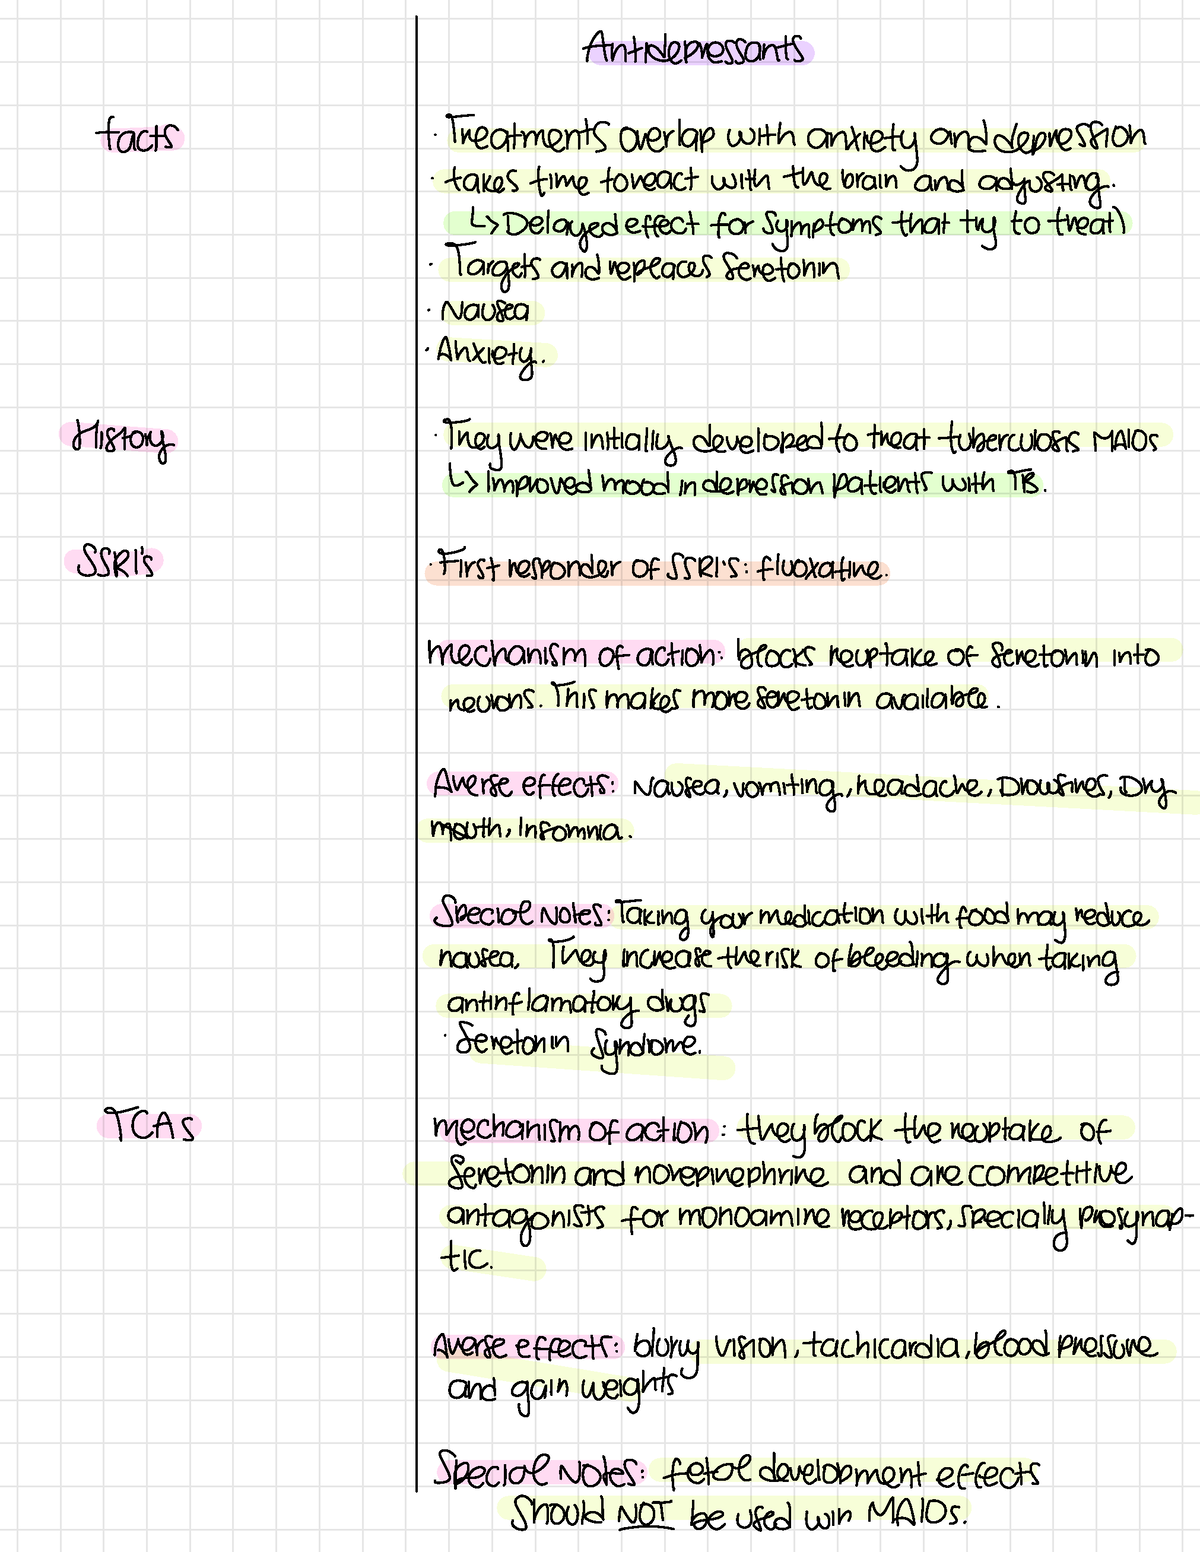 Antidepressants
facts
· Treatments overlap with anxiety and depression
· takes time to react with the brain and adjusting.
↳ Delayed effect for symptoms that try to treat)
· Targets and replaces Seretonin
· Nausea
· Anxiety.
History
· They were initially developed to treat tuberculosis MAIOs
↳ Improved mood in depression patients with TB.
SSRI's
· First responder of SSRI's: fluoxatine.
mechanism of action: blocks reuptake of Seretonin into
neurons. This makes more seretonin available.
Averse effects: Nausea, vomiting, headache, Drowsines, Dry
mouth, Insomnia.
Special Notes: Taking your medication with food may reduce
nausea. They increase the risk of bleeding when taking
antinflamatory drugs
· Seretonin Syndrome.
TCAs
mechanism of action: they block the reuptake of
Seretonin and norepinephrine and are competitive
antagonists for monoamine receptors, specially presynap-
tic.
Averse effects: blurry vision, tachicardia, blood pressure
and gain weights
Special Notes: fetal development effects
Should NOT be used win MAIOs.